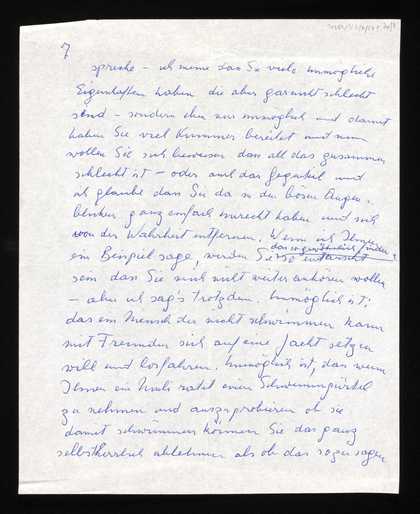 7
spreche – ich meine dass Sie viele unmögliche
Eigenschaften haben die aber garnicht schlecht
sind – sondern eben nur unmöglich und damit
haben Sie viel Kummer bereitet und nun
wollen Sie sich beweisen dass all das zusammen
schlecht ist – oder auch das Gegenteil und
ich glaube dass Sie da in den bösen Augen-
blicken ganz einfach unrecht haben und sich
von der Wahrheit entfernen. Wenn ich Ihnen
das so gewöhnlich finden
ein Beispiel sage, werden Sie so enttäuscht
sein dass Sie mich nicht weiter anhören wollen
– aber ich sag's trotzdem. Unmöglich ist:
dass ein Mensch der nicht schwimmen kann
mit Freunden sich auf eine Jacht setzen
will und losfahren. Unmöglich ist, dass wenn
Ihnen ein ratet einen Schwimmgürtel
zu nehmen und auszuprobieren ob sie
damit schwimmen können Sie das ganz
selbstherrlich ablehnen als ob das sozusagen